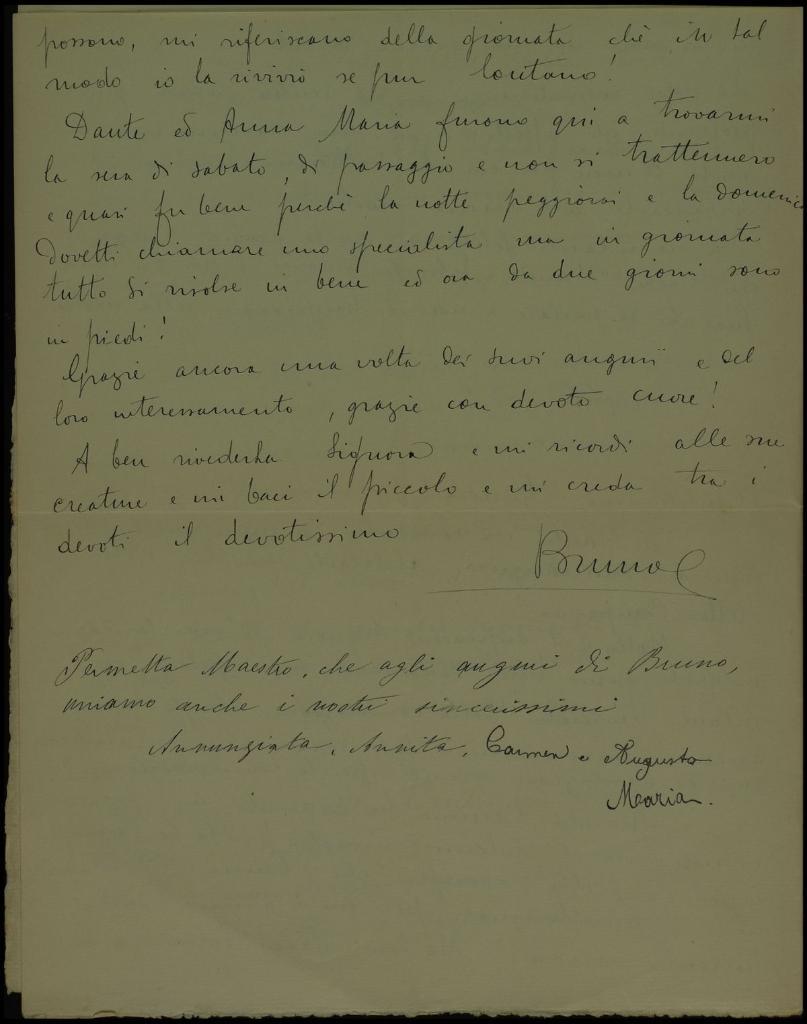 possono, mi riferiscano della giornata chè in tal
modo io la rivivrò se pur lontano!
Dante ed Anna Maria furono qui a trovarmi
la sera di sabato, di passaggio e non si trattennero
e quasi fu bene perchè la notte peggiorai e la domenica
dovetti chiamare uno specialista ma in giornata
tutto si risolse in bene ed ora da due giorni sono
in piedi!
Grazie ancora una volta dei suoi auguri e del
loro interessamento, grazie con devoto cuore!
A ben rivederla Signora e mi ricordi alle sue
creature e mi baci il piccolo e mi creda tra i
devoti il devotissimo
Bruno
Permetta Maestro, che agli auguri di Bruno,
uniamo anche i nostri sincerissimi
Annunziata, Annita, Carmen e Augusto
Maria.